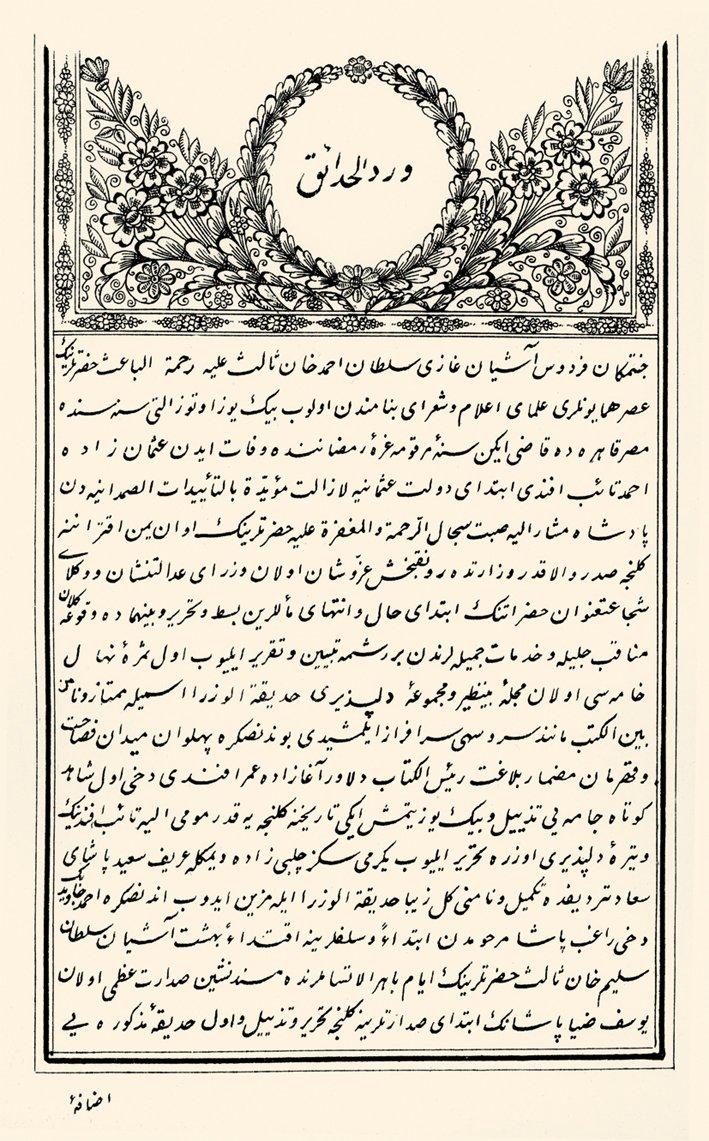 ورد الحدائق
جنتمكان فردوس آشيان غازى سلطان احمد خان ثالث عليه رحمة الباعث حضرتلرينك
عصر همايونلرى علماى اعلام و شعراى بنامندن اولوب بيك يوز اوتوز التى سنه سنده
مصر قاهره ده قاضى ايكن سنۀ مرقومه غرۀ رمضاننده وفات ايدن عثمان زاده
احمد تائب افندى ابتداى دولت عثمانيه لازالت مؤيدة بالتأييدات الصمدانيه دن
پادشاه مشار اليه صبت سجال الرحمة والمغفرة عليه حضرتلرينك اوان يمن اقتراننه
كلنجه صدر والاقدر وزارتده رونقبخش عز و شان اولان وزراى عدالتنشان و وكلاى
شجاعتعنوان حضراتنك ابتداى حال و انتهاى مأللرين بسط و تحرير و بينهماده وقوعه كلان
مناقب جليله و خدمات جميله لرندن بر رشمه تبيين و تقرير ايليوب اول ثمرۀ نهال
خامه سى اولان مجلۀ بينظير و مجموعۀ دلپذيرى حديقة الوزرا اسميله ممتاز و نامى
بين الكتب مانند سرو سهى سرافراز ايلمشيدى بوند نصكره پهلوان ميدان فصاحت
و قهرمان مضمار بلاغت رئيس الكتاب دلاور آغازاده عمر افندى دخى اول شاهد
كوتاه جامه يى تذييل و بيك يوز يتمش ايكى تاريخنه كلنجه يه قدر مومى اليه تائب افندينك
وتيرۀ دلپذيرى اوزره تحرير ايليوب يكرمى سكز چلبى زاده ديمكله عريف سعيد پاشاى
سعادتر ديفده تكميل و نامنى كل زيبا حديقة الوزرا ايله مزين ايدوب اندنصكره احمد جاويد بك
دخى راغب پاشا مرحومدن ابتداء و سلفلرينه اقتداء بهشت آشيان سلطان
سليم خان ثالث حضرتلرينك ايام باهر الانتساملرنده مسندنشين صدارت عظمى اولان
يوسف ضيا پاشانك ابتداى صدارتلرينه كلنجه تحرير و تذييل و اول حديقۀ مذكوره يى
اضافۀ